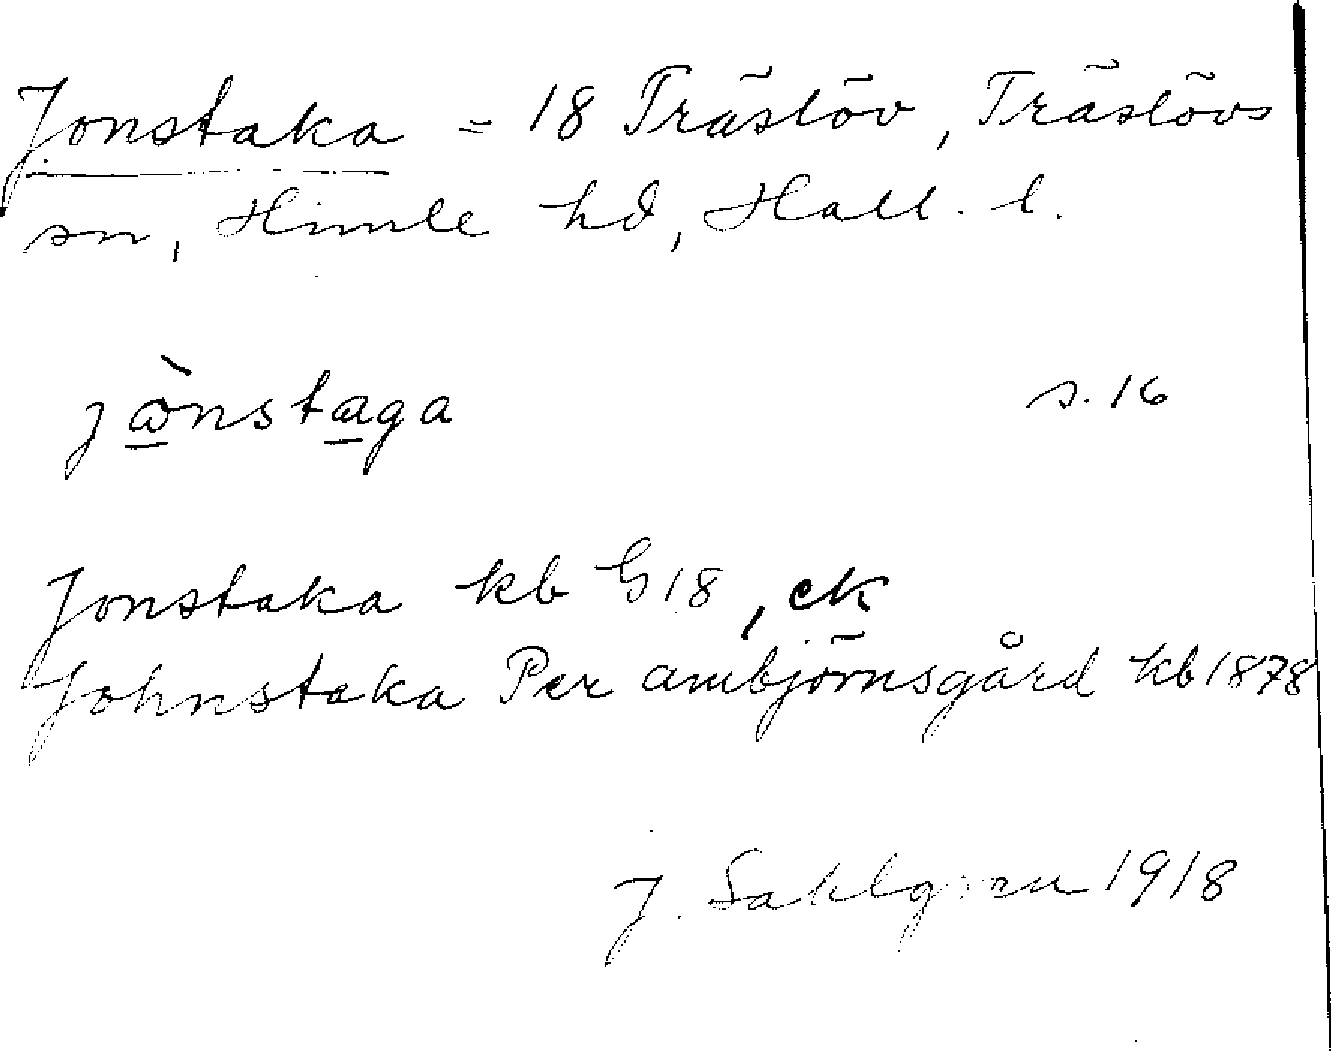 Jonstaka = 18 Träslöv, Träslövs
sn, Himle hd, Hall. l.
jὼnstaga s. 16
Jonstaka kb G 18, ek
Johnstaka Per ambjörnsgård kb 1878
J. Sahlgren 1918